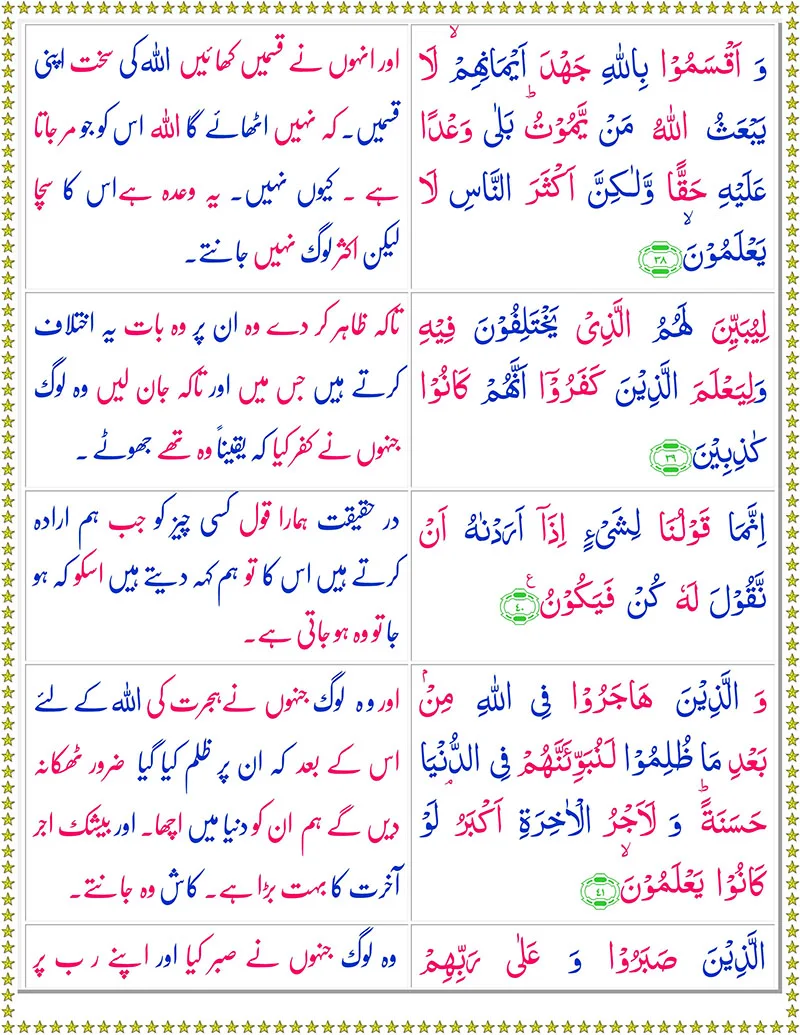 وَ اَقْسَمُوْا بِاللّٰهِ جَهْدَ اَيْمَانِهِمْ ۙ لَا
يَبْعَثُ اللّٰهُ مَنْ يَّمُوْتُ ؕ بَلٰى وَعْدًا
عَلَيْهِ حَقًّا وَّلٰـكِنَّ اَكْثَرَ النَّاسِ لَا
يَعْلَمُوْنَ ۙ ﴿۳۸﴾
اور انہوں نے قسمیں کھائیں اللہ کی سخت اپنی
قسمیں۔ کہ نہیں اٹھائے گا اللہ اس کو جو مرجاتا
ہے ۔ کیوں نہیں۔ یہ وعدہ ہے اس کا سچا
لیکن اکثر لوگ نہیں جانتے۔
لِيُبَيِّنَ لَهُمُ الَّذِىْ يَخْتَلِفُوْنَ فِيْهِ
وَلِيَعْلَمَ الَّذِيْنَ كَفَرُوْۤا اَنَّهُمْ كَانُوْا
كٰذِبِيْنَ ﴿۳۹﴾
تاکہ ظاہر کر دے وہ ان پر وہ بات یہ اختلاف
کرتے ہیں جس میں اور تاکہ جان لیں وہ لوگ
جنہوں نے کفر کیا کہ یقیناً وہ تھے جھوٹے ۔
اِنَّمَا قَوْلُنَا لِشَىْءٍ اِذَاۤ اَرَدْنٰهُ اَنْ
نَّقُوْلَ لَهٗ كُنْ فَيَكُوْنُ ﴿۴۰﴾ ع
در حقیقت ہمارا قول کسی چیز کو جب ہم ارادہ
کرتے ہیں اس کا تو ہم کہہ دیتے ہیں اسکو کہ ہو
جا تو وہ ہو جاتی ہے۔
وَ الَّذِيْنَ هَاجَرُوْا فِى اللّٰهِ مِنْۢ
بَعْدِ مَا ظُلِمُوْا لَـنُبَوِّئَنَّهُمْ فِى الدُّنْيَا
حَسَنَةً ؕ وَ لَاَجْرُ الْاٰخِرَةِ اَكْبَرُ ۘ لَوْ
كَانُوْا يَعْلَمُوْنَ ۙ ﴿۴۱﴾
اور وہ لوگ جنہوں نے ہجرت کی اللہ کے لئے
اس کے بعد کہ ان پر ظلم کیا گیا ضرور ٹھکانہ
دیں گے ہم ان کو دنیا میں اچھا۔ اور بیشک اجر
آخرت کا بہت بڑا ہے۔ کاش وہ جانتے۔
الَّذِيْنَ صَبَرُوْا وَ عَلٰى رَبِّهِمْ
وہ لوگ جنہوں نے صبر کیا اور اپنے رب پر